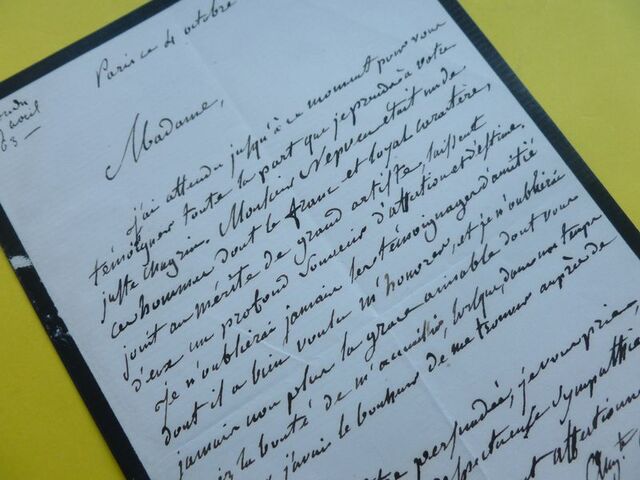 Paris ce 4 octobre
avril
63
Madame,
j'ai attendu jusqu'à ce moment pour vous
témoigner toute la part que je prends à votre
juste chagrin. Monsieur Nepveu était un de
ces hommes dont le franc et loyal caractère,
joint au mérite de grand artiste, laissent
d'eux un profond souvenir d'affection et d'estime.
Je n'oublierai jamais les témoignages d'amitié
dont il a bien voulu m'honorer, et je n'oublierai
jamais non plus la grace aimable dont vous
la bonté de m'accueillir, lorsque dans un temps
j'avais le bonheur de me trouver auprès de
persuadée, je vous prie
respectueuse sympathie
attentionné